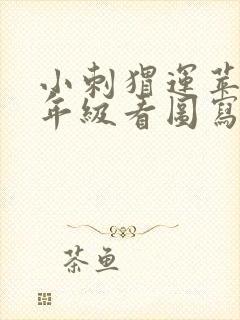 小刺猬運苹
年級看圖寫
茶魚